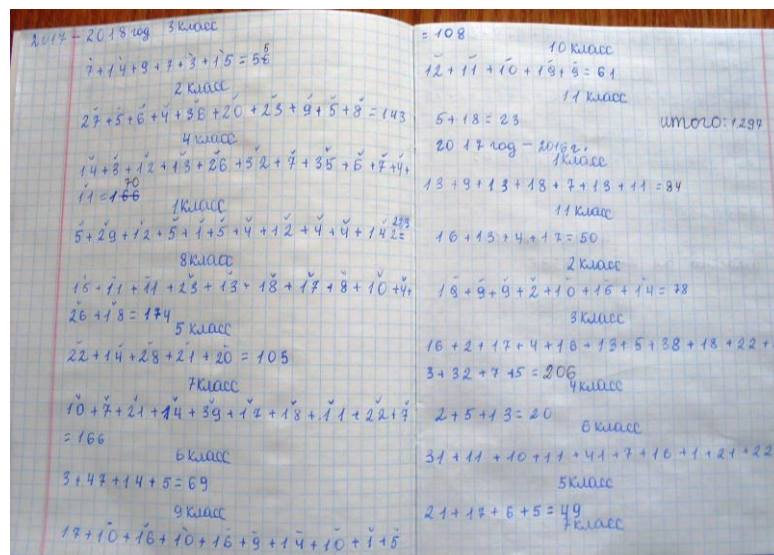 2017-2018 год 3 класс
7+14+9+7+3+15=55
2 класс
27+5+6+4+36+20+23+9+5+8=143
4 класс
14+3+12+13+26+32+7+35+6+7+4+
11=170
1 класс
5+29+12+5+1+5+4+12+4+4+142=
8 класс
15+11+11+23+13+18+17+8+10+4+
26+18=174
5 класс
22+14+28+21+20=105
7 класс
10+7+21+14+39+17+18+11+22+7
=166
6 класс
3+47+14+5=69
9 класс
17+10+16+10+16+9+14+10+1+5
=108
10 класс
12+11+10+19+9=61
11 класс
5+18=23 итого: 1297
2017 год - 2016 г.
1 класс
13+9+13+18+7+13+11=84
11 класс
16+13+4+17=50
2 класс
18+9+9+2+10+16+14=78
3 класс
16+2+17+4+16+13+5+38+18+22+
3+32+7+5=206
4 класс
2+5+13=20
6 класс
31+11+10+11+41+7+16+1+21+22
5 класс
21+17+6+5=49
7 класс